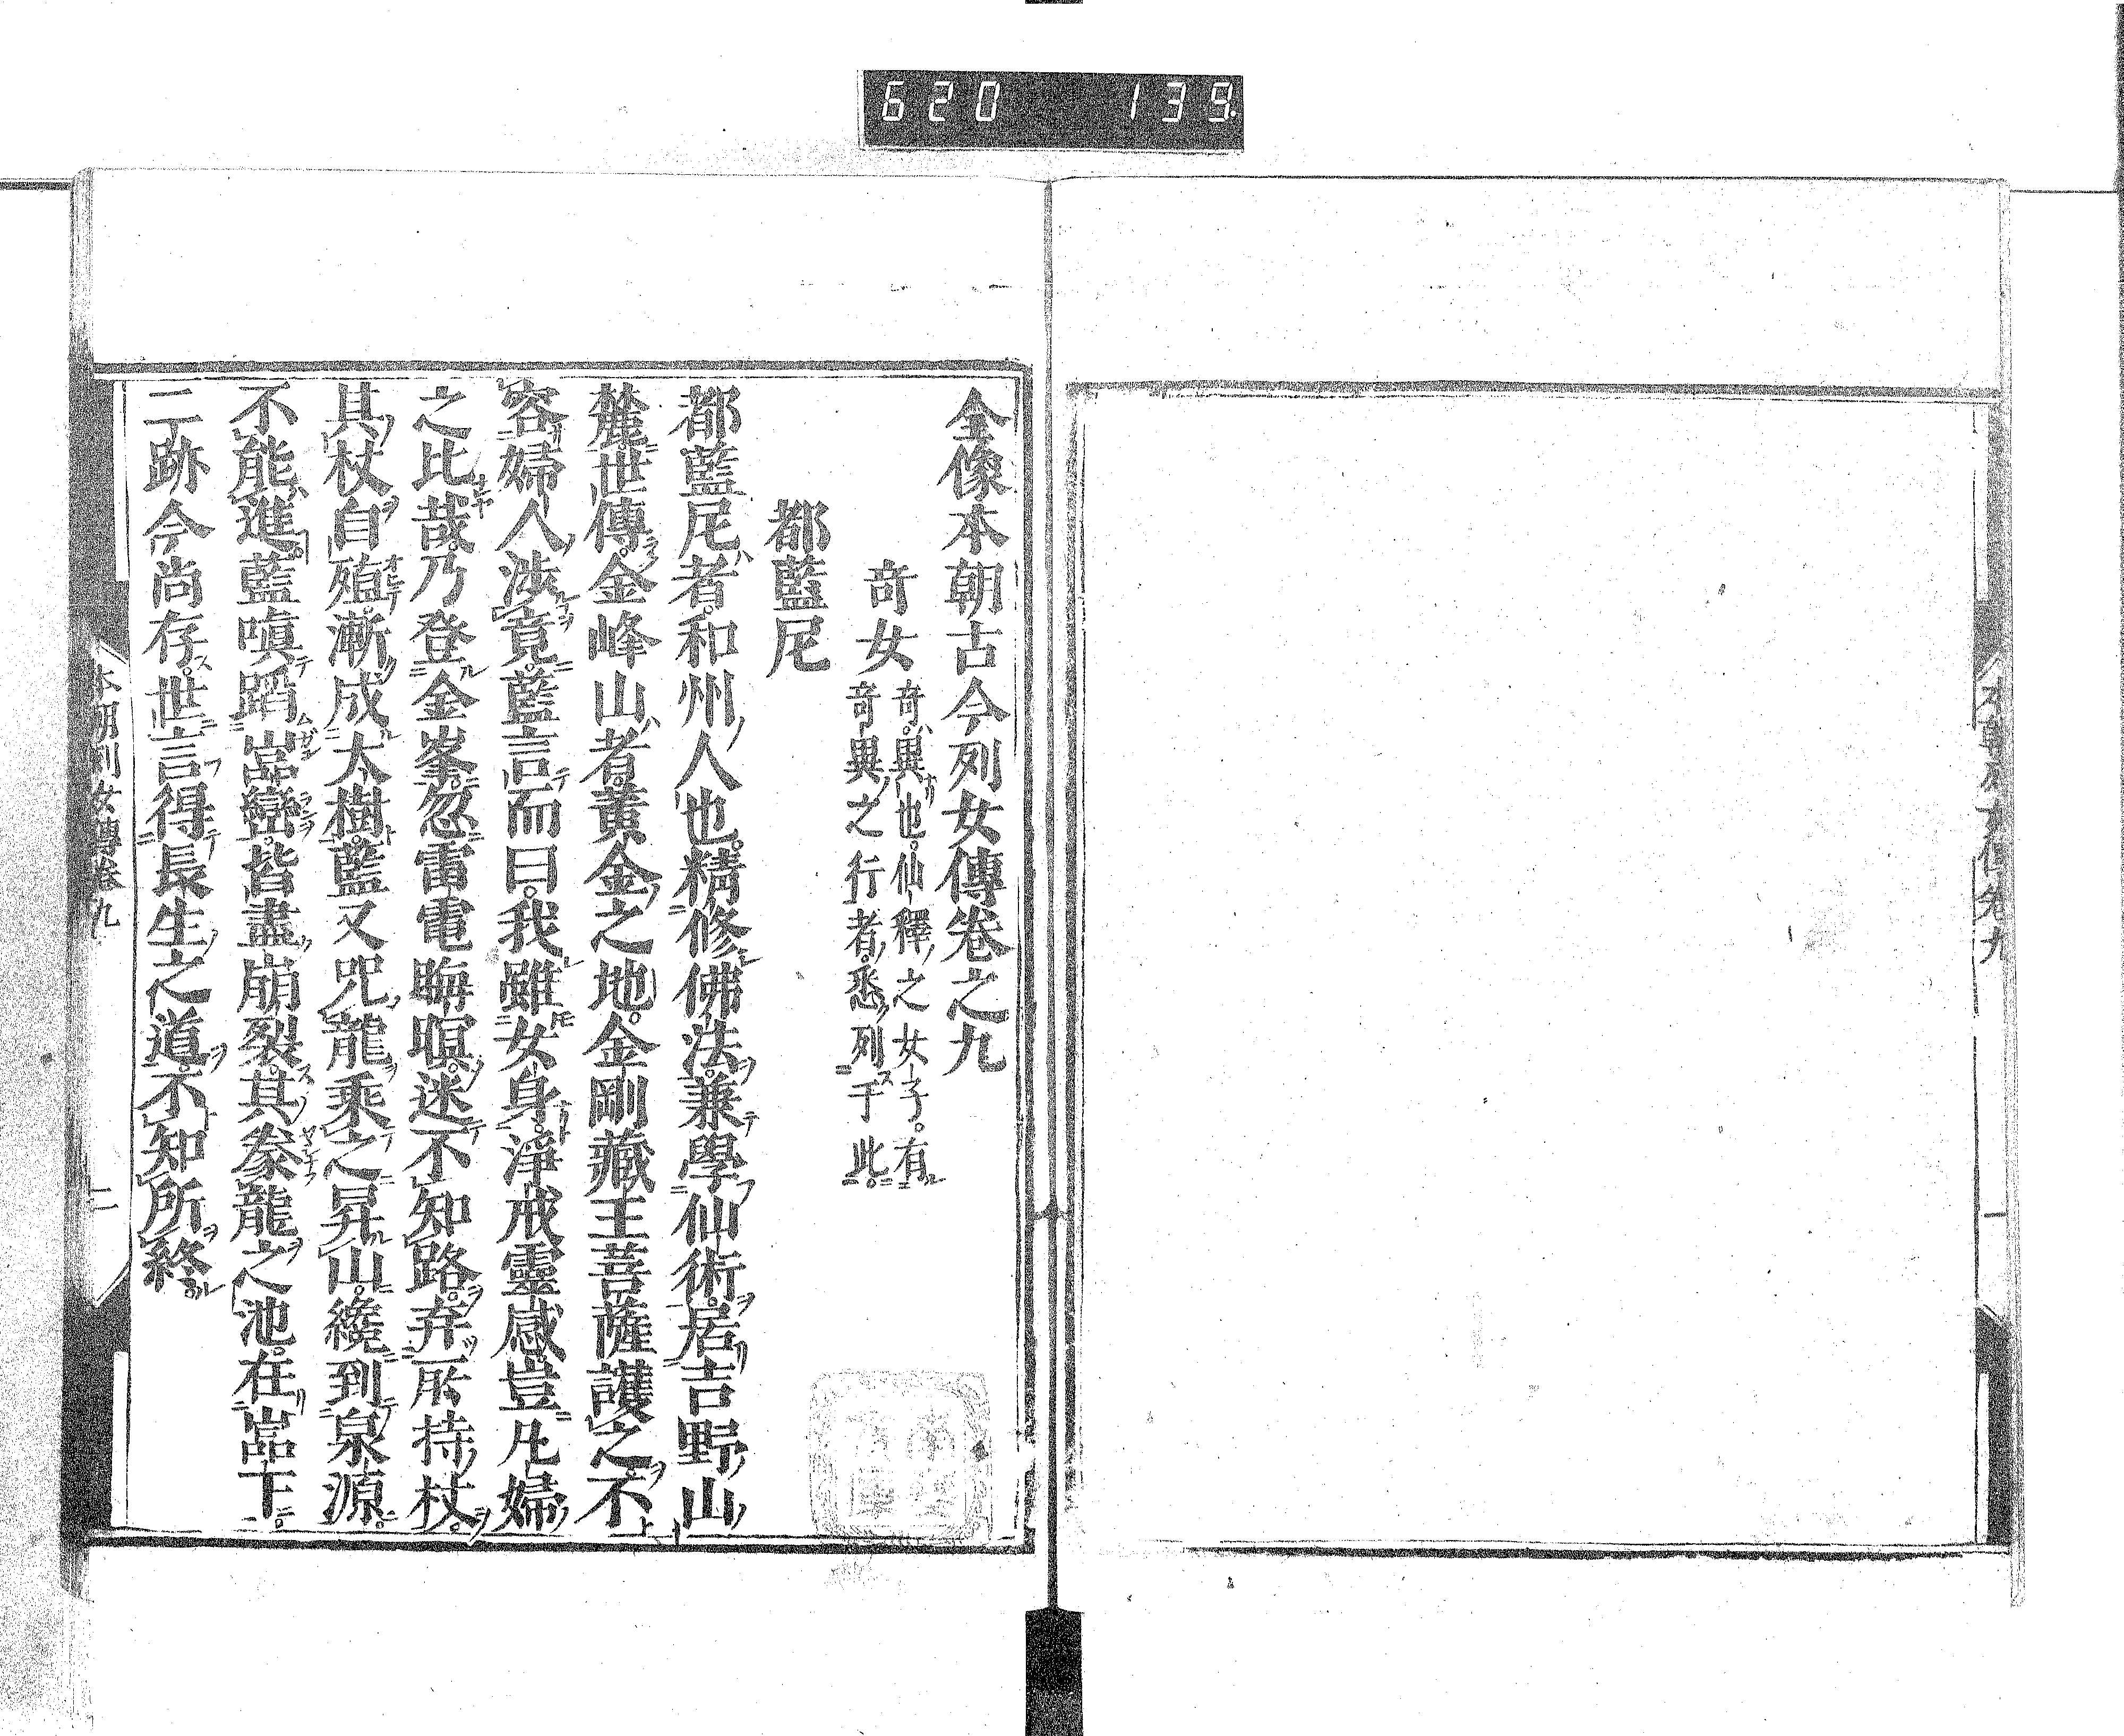 620 139
本朝列女傳卷九
一
全像本朝古今列女傳卷之九
奇女
奇ハ異也仙釋之女子。有
奇異之行者。悉列于此。
都藍尼
都藍尼者。和州人也。精修佛法。兼學仙術。居吉野山
麓。世傳。金峰山者。黃金之地。金剛藏王菩薩護之。不
容婦人涉竟。藍言而曰。我雖女身。淨戒靈感。豈凡婦
之比哉。乃登金峯。忽雷電晦暝。迷不知路。弃所持杖。
具杖自殖。漸成大樹。藍又咒龍乘之昇山。纔到泉源。
不能進。藍嗔蹈嵓巒。皆盡崩裂。其養龍之池。在嵓下。
二跡今尚存。世言得長生之道。不知所終。
本朝列女傳卷九
二